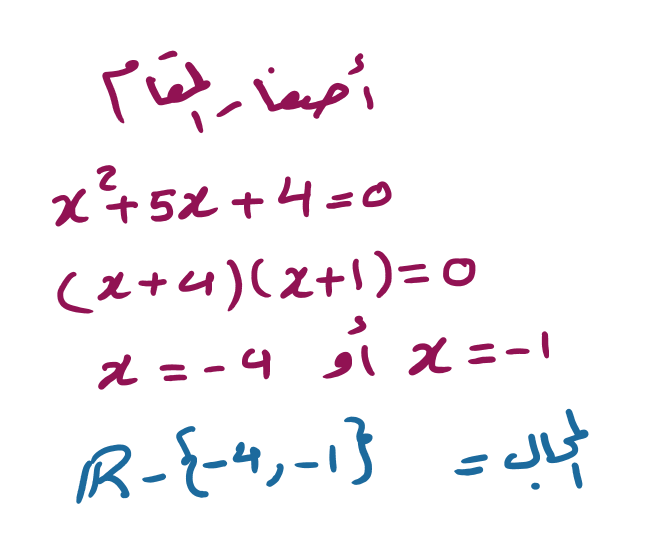 أصفار المقام
x²+5x+4=0
(x+4)(x+1)=0
x=-4 أو x=-1
المجال = R-{-4,-1}